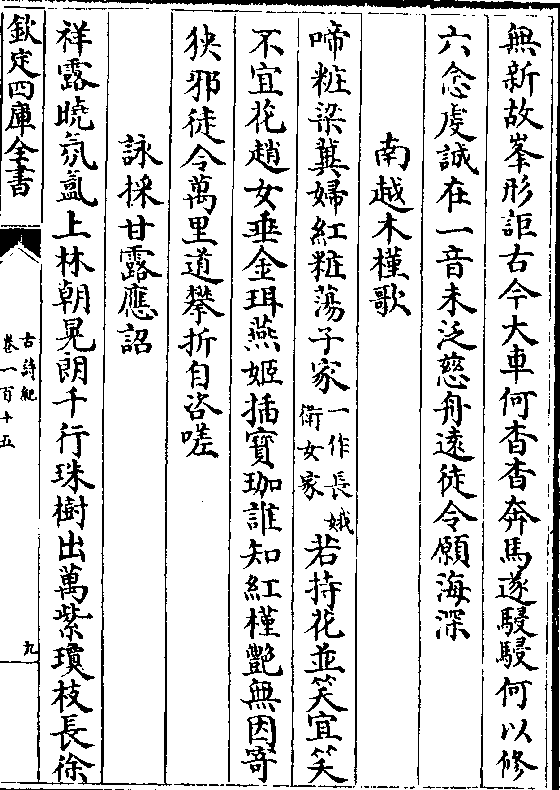 無新故峯形詎古今大車何杳杳奔馬遂駸駸何以修
六念虔誠在一音未泛慈舟遠徒令願海深
南越木槿歌
啼粧梁冀婦紅粧蕩子家一作長娥衛女家若持花並笑宜笑
不宜花趙女垂金珥燕姬插寳珈誰知紅槿艷無因寄
狹邪徒令萬里道攀折自咨嗟
詠採甘露應詔
祥露曉氛氲上林朝晃朗千行珠樹出萬紫瓊枝長徐
欽定四庫全書
古詩紀
卷一百十五
九